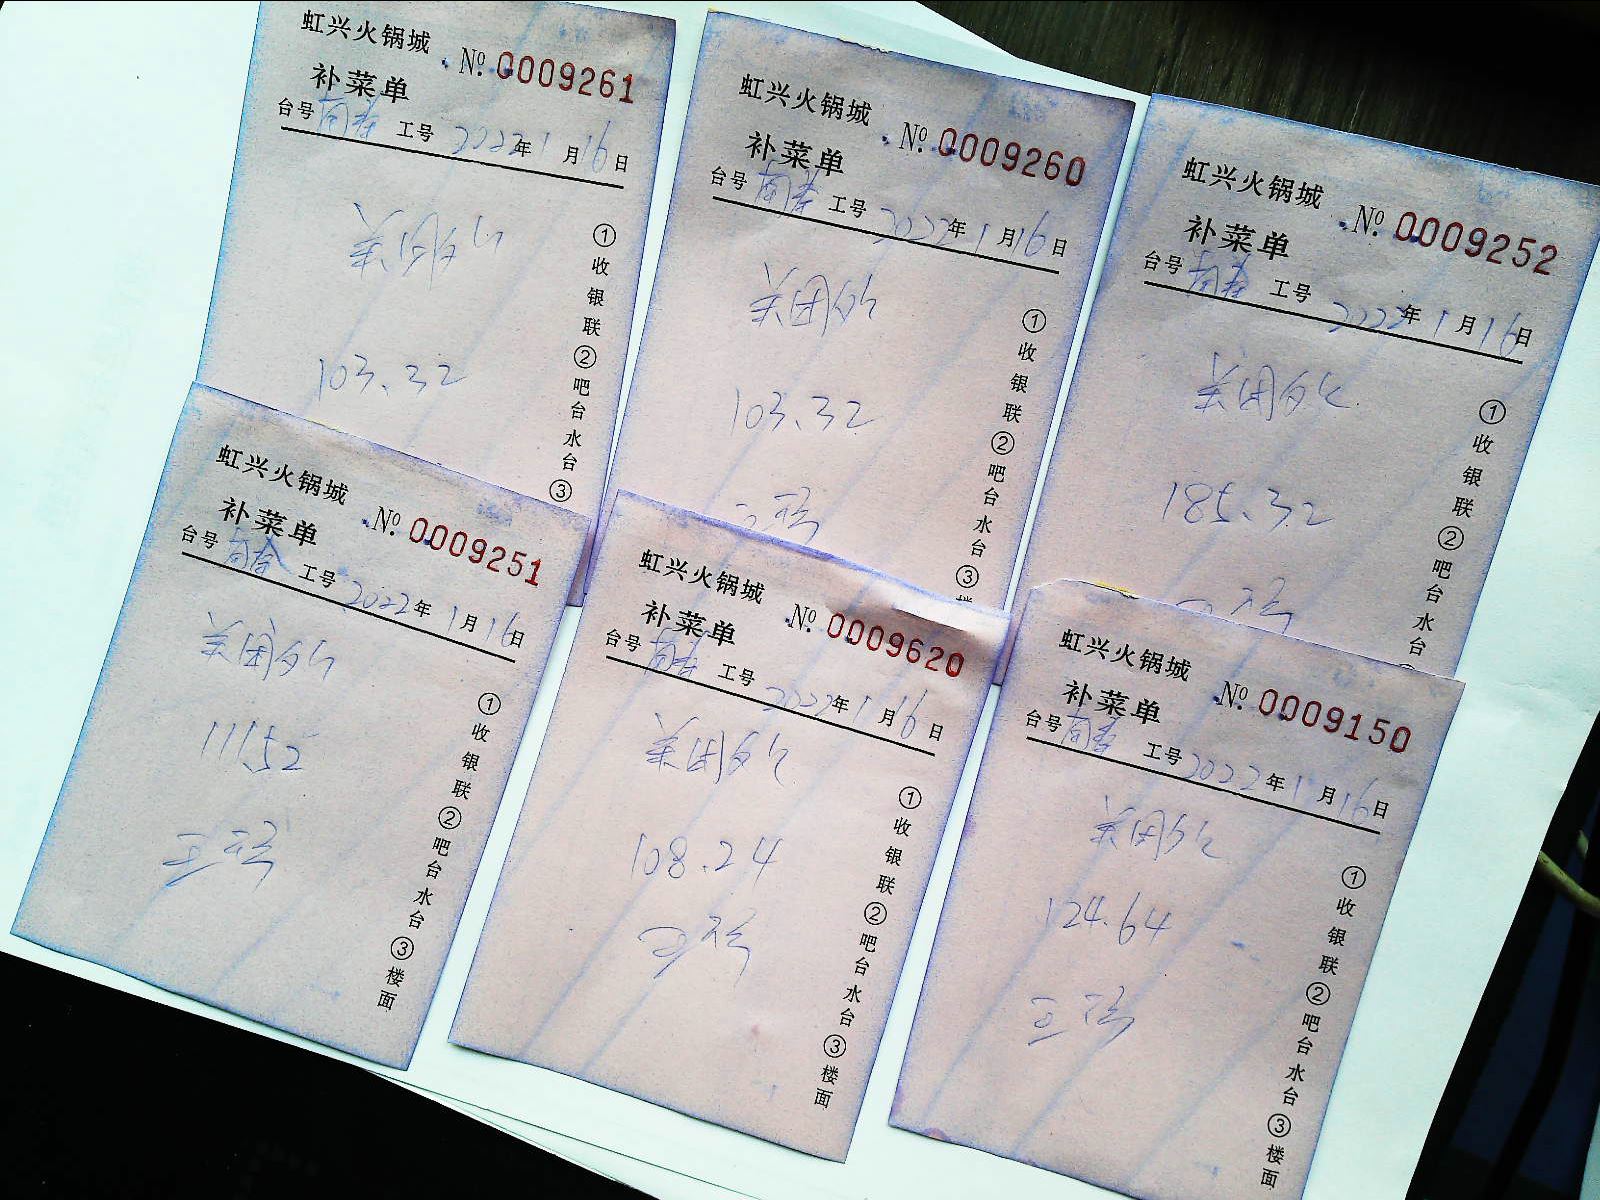 虹兴火锅城
补菜单
№ 0009261
台号 工号 2022年1月16日
103.32
①收银联②吧台水台③
虹兴火锅城
补菜单
№ 0009260
台号 工号 2022年1月16日
美团外
103.32
①收银联②吧台水台③楼
虹兴火锅城
补菜单
№ 0009252
台号 工号 2022年1月16日
美团外
185.32
①收银联②吧台水台
虹兴火锅城
补菜单
№ 0009251
台号 工号 2022年1月16日
美团外
①收银联②吧台水台③楼面
虹兴火锅城
补菜单
№ 0009620
台号 工号 2022年1月16日
美团外
108.24
①收银联②吧台水台③楼面
虹兴火锅城
补菜单
№ 0009150
台号 工号 2022年1月16日
美团外
124.64
①收银联②吧台水台③楼面